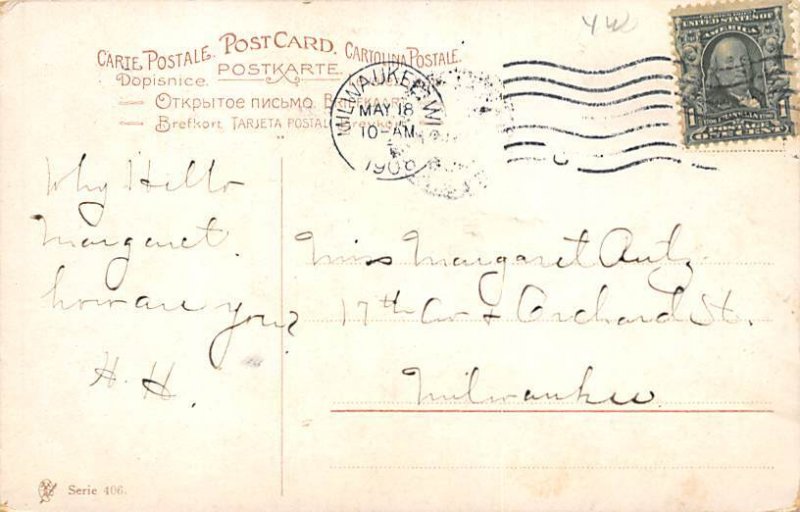 YW
CARTE POSTALE. POSTCARD. CARTOLINA POSTALE.
Dopisnice. POSTKARTE
— Открытое письмо.
— Brefkort. TARJETA POSTAL
MILWAUKEE, WI
MAY 18
10-AM
UNITED STATES OF
AMERICA
1
Why Hello
Margaret.
how are you?
H. H.
Miss Margaret Autz
17th Av & Orchard St.
Milwaukee
Serie 406.